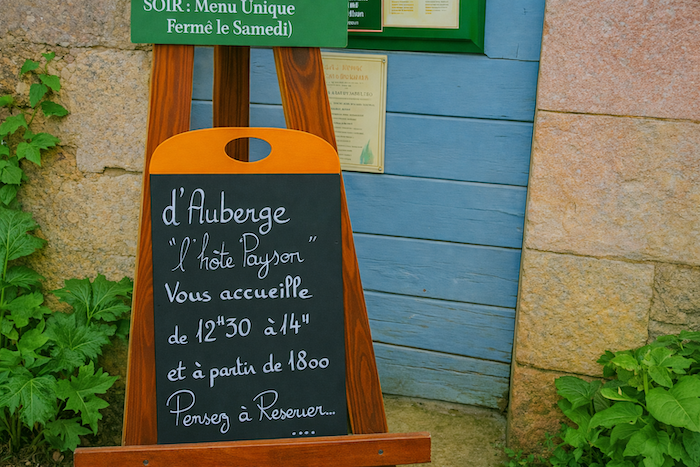 SOIR : Menu Unique
Fermé le Samedi)
d'Auberge
"l'hôte Paysan"
Vous accueille
de 12ᴴ30 à 14ᴴ
et à partir de 18oo
Pensez à Reserver...